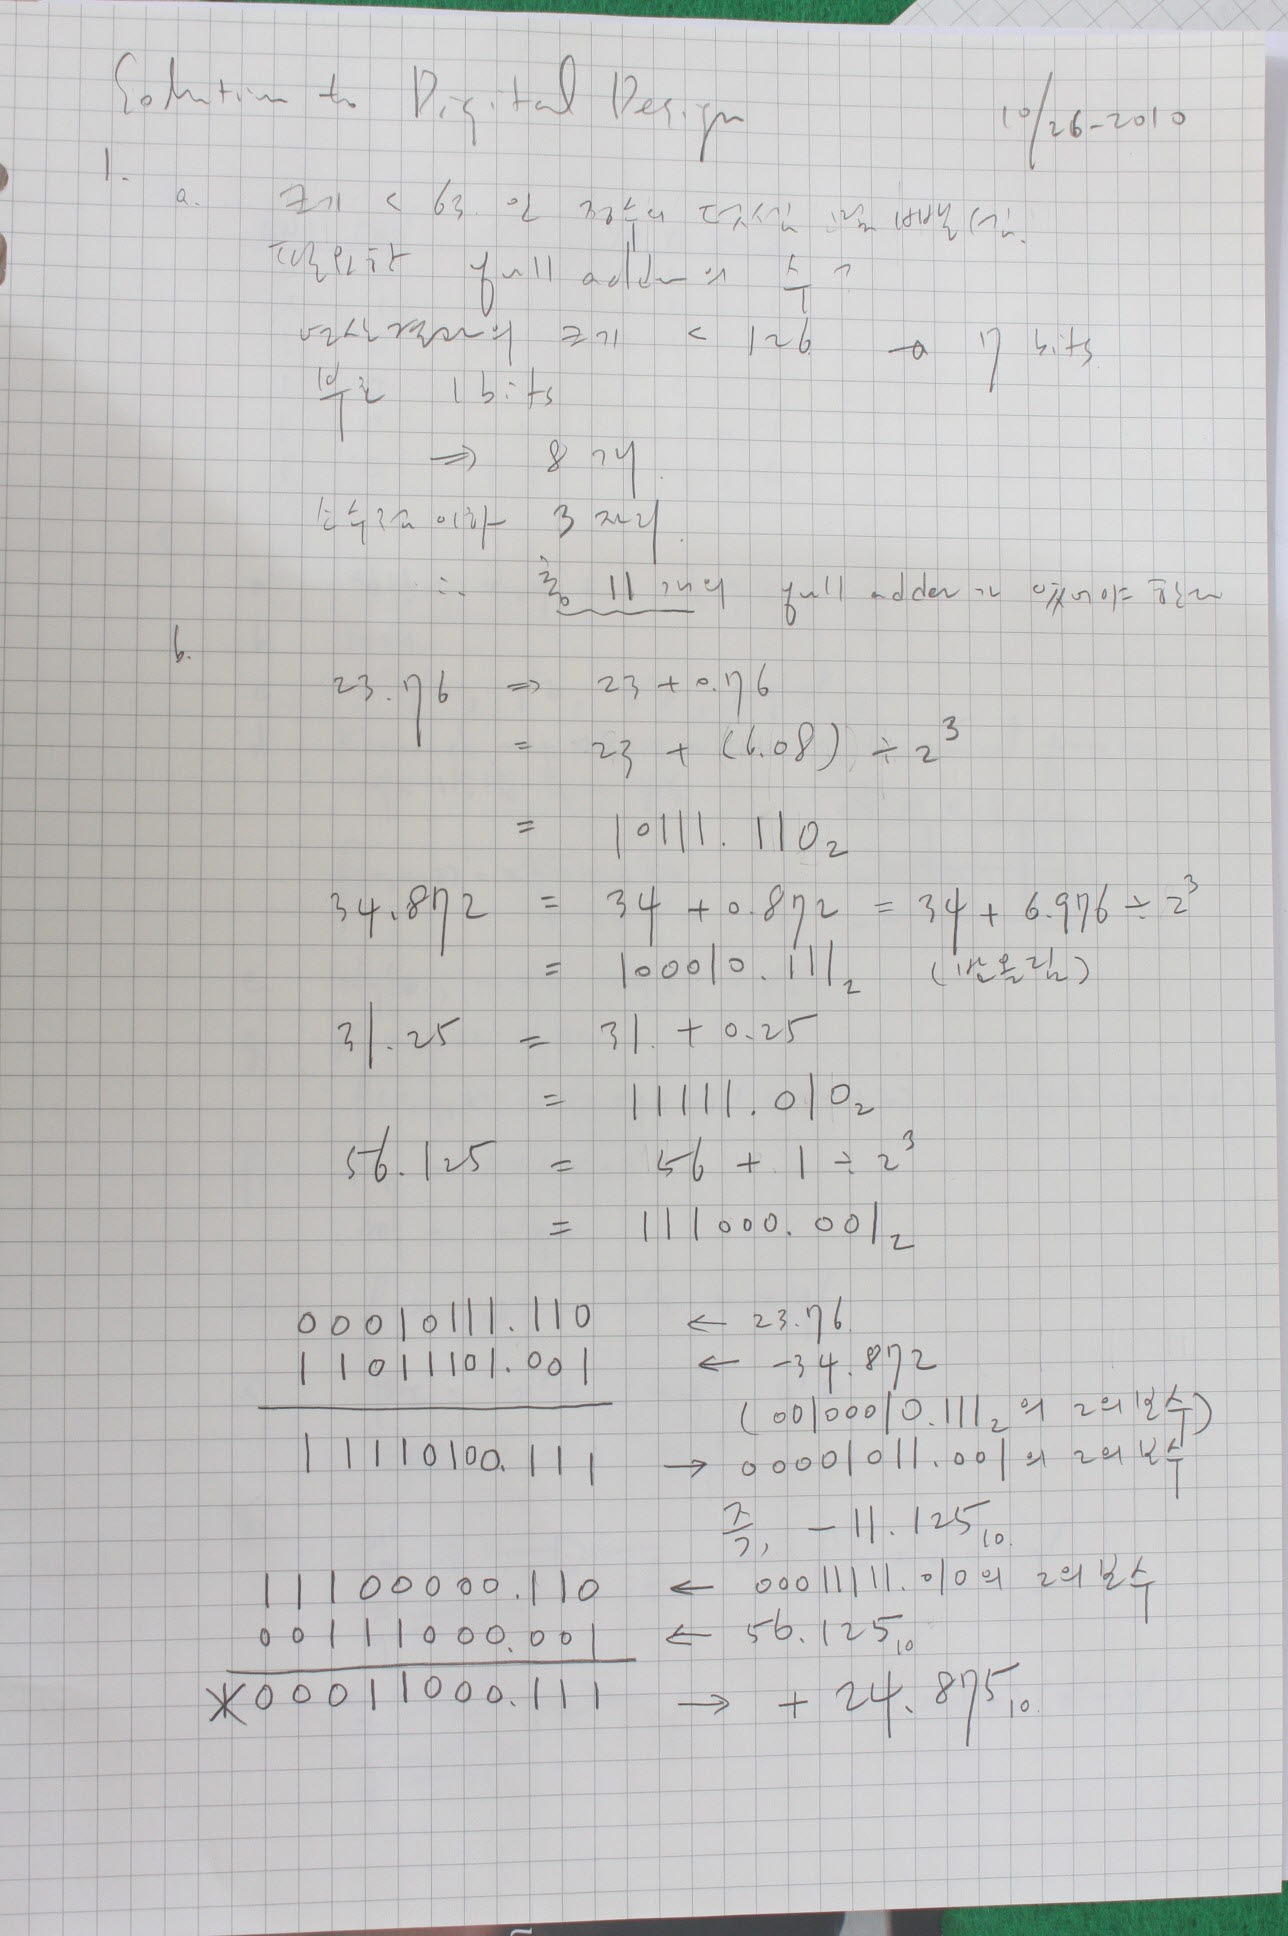 Solution to Digital Design 10/26-2010
1. a. 크기 < 63 인 정수의 덧셈 뺄셈시
필요한 full adder의 수?
연산결과의 크기 < 126 → 7 bits
부호 1 bits
⇒ 8 개
소수점 이하 3 자리
∴ 총 11 개의 full adder가 있어야 한다
b.
23.76 ⇒ 23 + 0.76
= 23 + (6.08) ÷ 2³
= 10111.110₂
34.872 = 34 + 0.872 = 34 + 6.976 ÷ 2³
= 100010.111₂ (반올림)
31.25 = 31. + 0.25
= 11111.010₂
56.125 = 56 + 1 ÷ 2³
= 111000.001₂
00010111.110 ← 23.76
11011101.001 ← -34.872
(00100010.111₂의 2의 보수)
11110100.111 → 00001011.001의 2의 보수
즉, -11.125₁₀
11100000.110 ← 00011111.010의 2의 보수
00111000.001 ← 56.125₁₀
00011000.111 → + 24.875₁₀